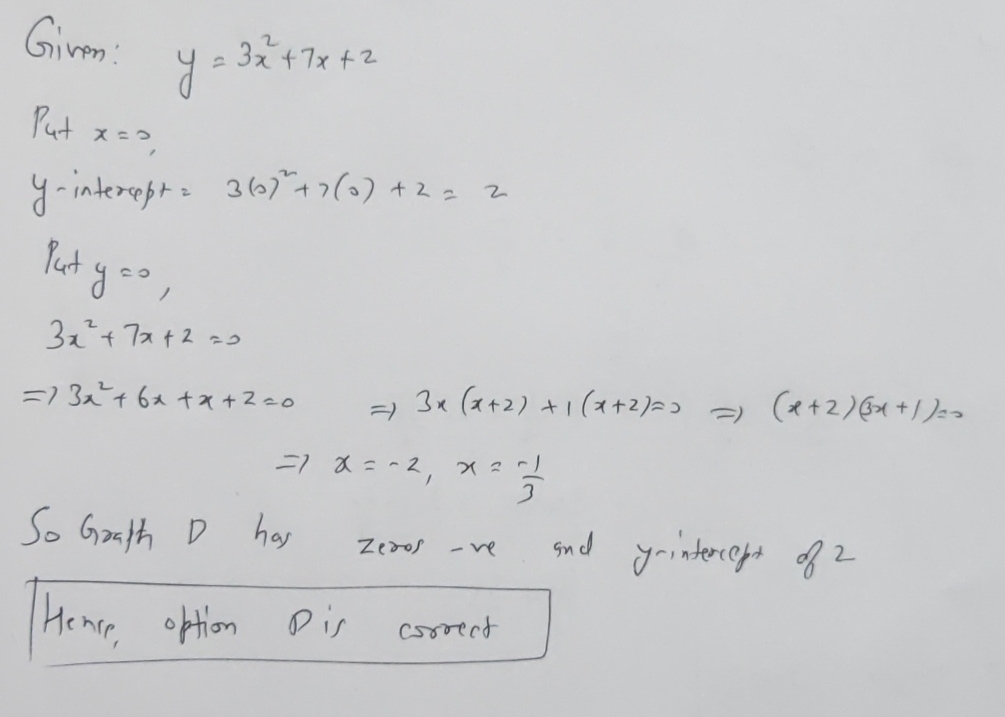 Given: y = 3x² + 7x + 2
Put x = 0,
y-intercept = 3(0)² + 7(0) + 2 = 2
Put y = 0,
3x² + 7x + 2 = 0
=> 3x² + 6x + x + 2 = 0 => 3x(x+2) + 1(x+2) = 0 => (x+2)(3x+1) = 0
=> x = -2, x = -1/3
So Graph D has zeros -ve and y-intercept of 2
Hence, option D is correct